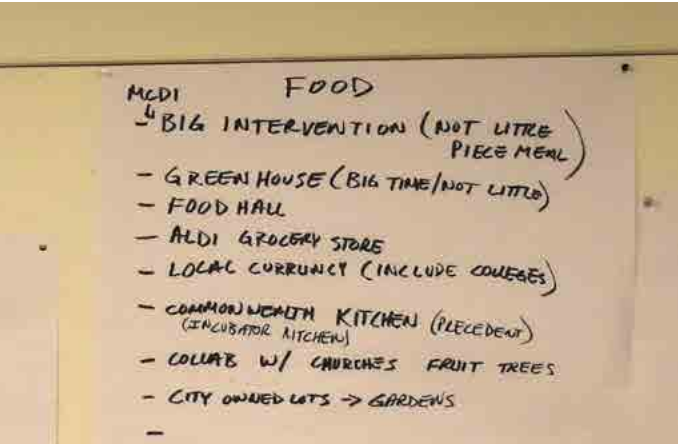 FOOD
MCDI
↳ BIG INTERVENTION (NOT LITTLE
PIECE MEAL)
- GREEN HOUSE (BIG TIME/NOT LITTLE)
- FOOD HALL
- ALDI GROCERY STORE
- LOCAL CURRUNCY (INCLUDE COLLEGES)
- COMMONWEALTH KITCHEN (PRECEDENT)
(INCUBATOR KITCHEN)
- COLLAB W/ CHURCHES FRUIT TREES
- CITY OWNED LOTS → GARDENS
-